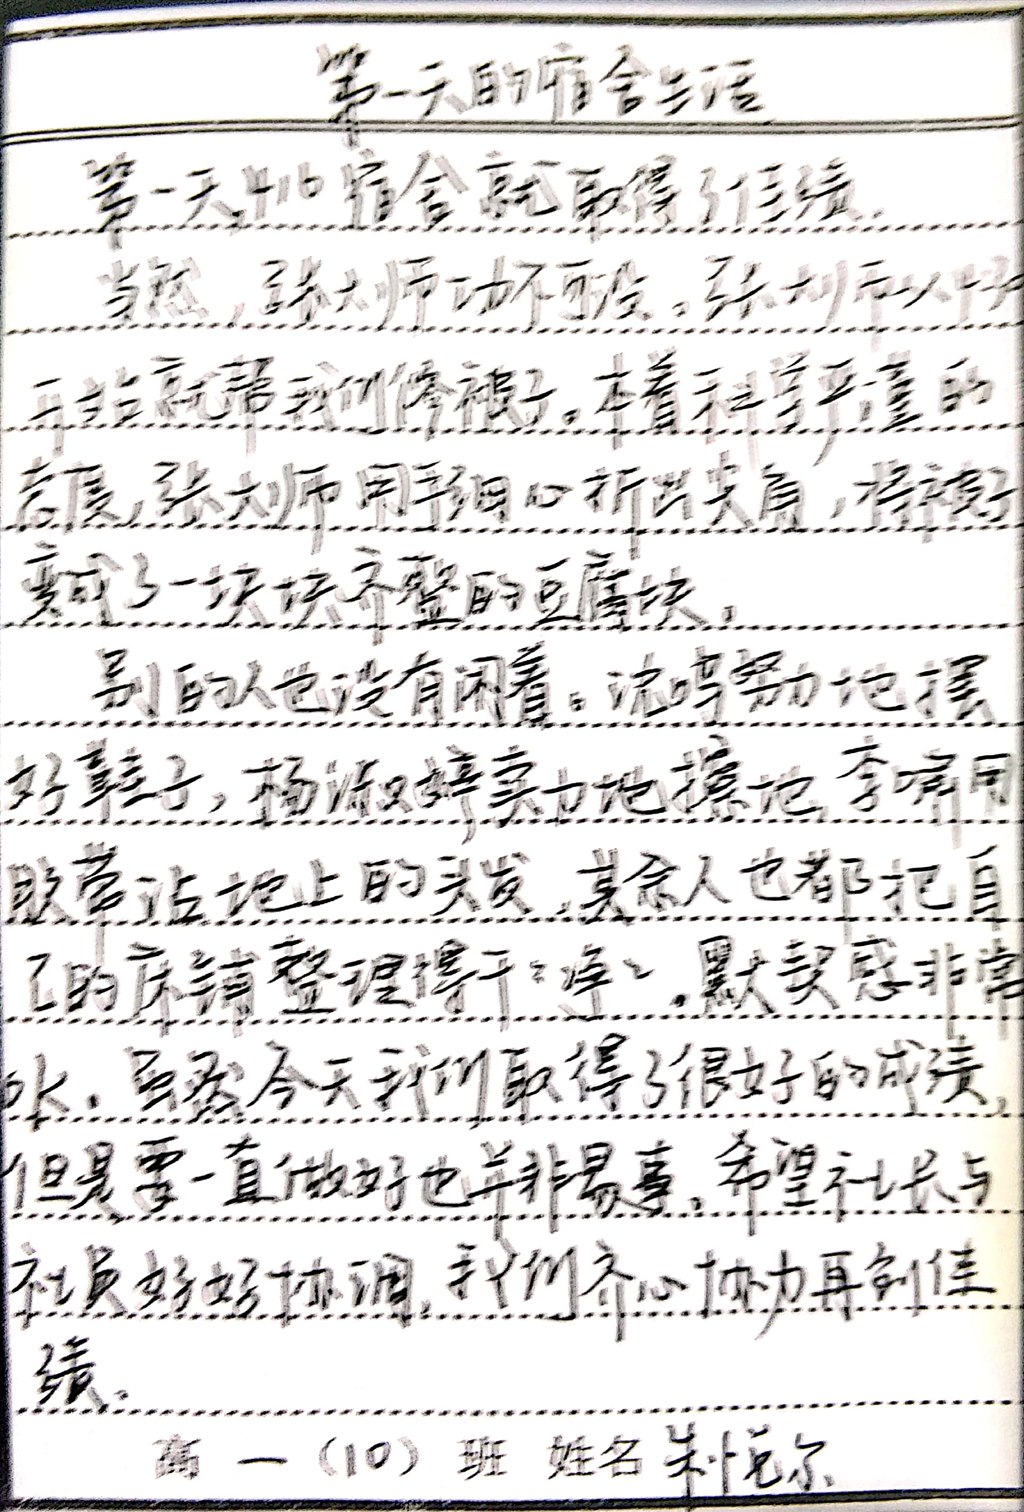 第一天的宿舍生活
第一天,416宿舍就取得了佳绩.
当然,张大师功不可没。张大师从中午
开始就帮我们修被子。本着科学严谨的
态度,张大师用手细心折出尖角,将被子
变成了一块块齐整的豆腐块。
别的人也没有闲着。沈鸣努力地摆
好鞋子,杨淑婷卖力地擦地,李啸用
胶带沾地上的头发,其余人也都把自
己的床铺整理得干干净净。默契感非常
水。虽然今天我们取得了很好的成绩,
但是要一直做好也并非易事。希望社长与
社员好好协调,我们齐心协力再创佳
绩。
高一(10)班 姓名 朱